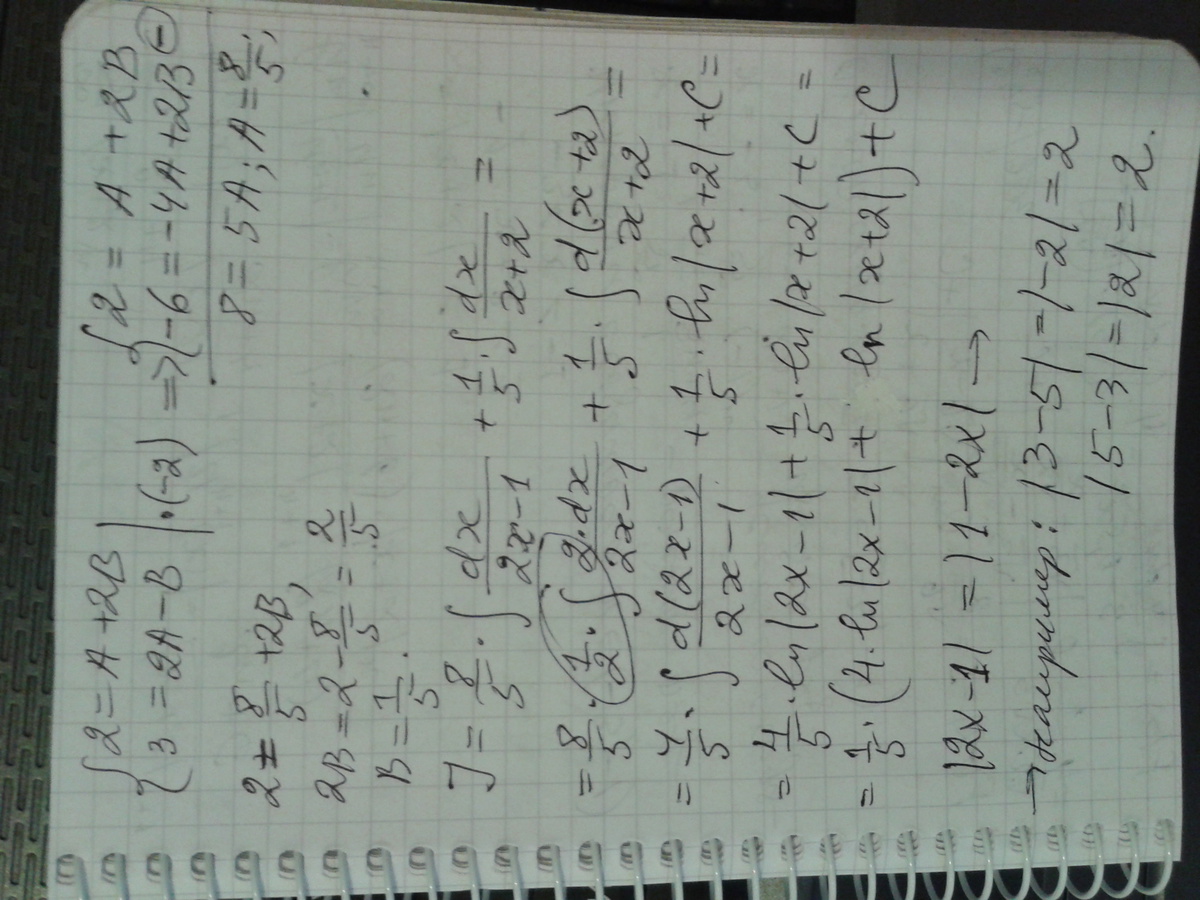 {2 = A + 2B
{3 = 2A - B |·(-2) => {2 = A + 2B
{-6 = -4A + 2B (-)
8 = 5A; A = 8/5;
2 = 8/5 + 2B,
2B = 2 - 8/5 = 2/5
B = 1/5.
J = 8/5 · ∫ dx/(2x-1) + 1/5 · ∫ dx/(x+2) =
= 8/5 · (1/2 · ∫ 2·dx/(2x-1) + 1/5 · ∫ d(x+2)/(x+2) =
= 4/5 · ∫ d(2x-1)/(2x-1) + 1/5 · ln|x+2| + C =
= 4/5 · ln|2x-1| + 1/5 · ln|x+2| + C =
= 1/5 · (4·ln|2x-1| + ln|x+2|) + C
|2x-1| = |1-2x| →
→ например: |3-5| = |-2| = 2
|5-3| = |2| = 2.